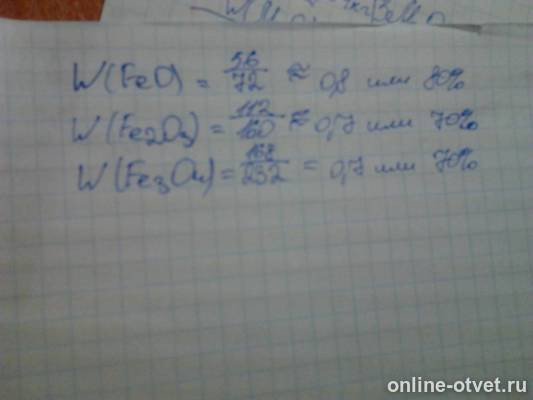 W(FeO) = 56/72 ≈ 0,8 или 80%
W(Fe2O3) = 112/160 ≈ 0,7 или 70%
W(Fe3O4) = 168/232 = 0,7 или 70%
online-otvet.ru